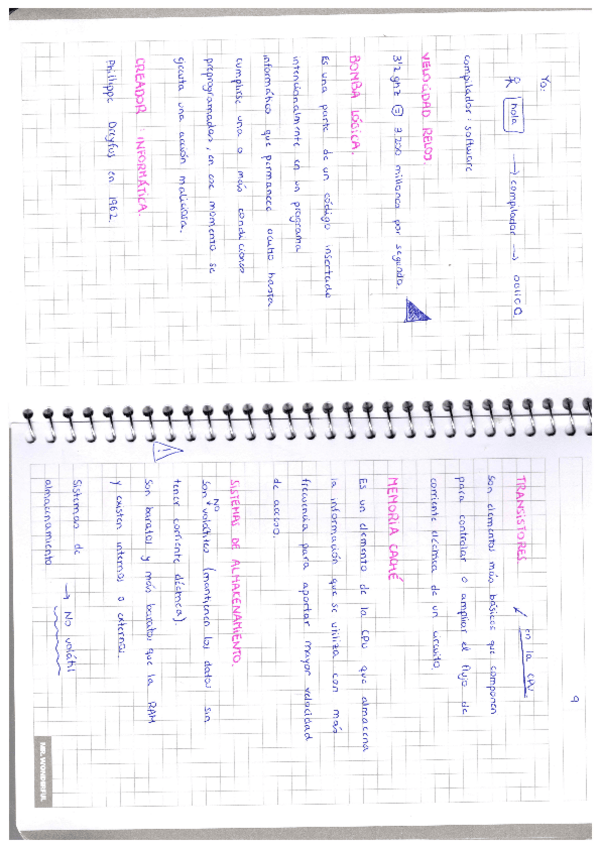 Yo:
hola → compilador →
compilador: software
VELOCIDAD RELOJ.
3'2 ghz = 3.200 millones por segundo.
BOMBA LÓGICA.
Es una parte de un código insertado
intencionalmente en un programa
informático que permanece oculto hasta
cumplirse una o más condiciones
preprogramadas, en ese momento se
ejecuta una acción maliciosa.
CREADOR INFORMÁTICA.
Philippe Dreyfus en 1962.
9
TRANSISTORES. en la CPU
Son elementos más básicos que componen
para controlar o ampliar el flujo de
corriente eléctrica de un circuito
MEMORIA CACHÉ
Es un elemento de la CPU que almacena
la información que se utiliza con más
frecuencia para aportar mayor velocidad
de acceso.
SISTEMAS DE ALMACENAMIENTO.
Son NO volátiles (mantienen los datos sin
tener corriente eléctrica).
! Son baratos y más baratos que la RAM
y existen internos o externos.
Sistemas de
almacenamiento → No volátil
MR. WONDERFUL